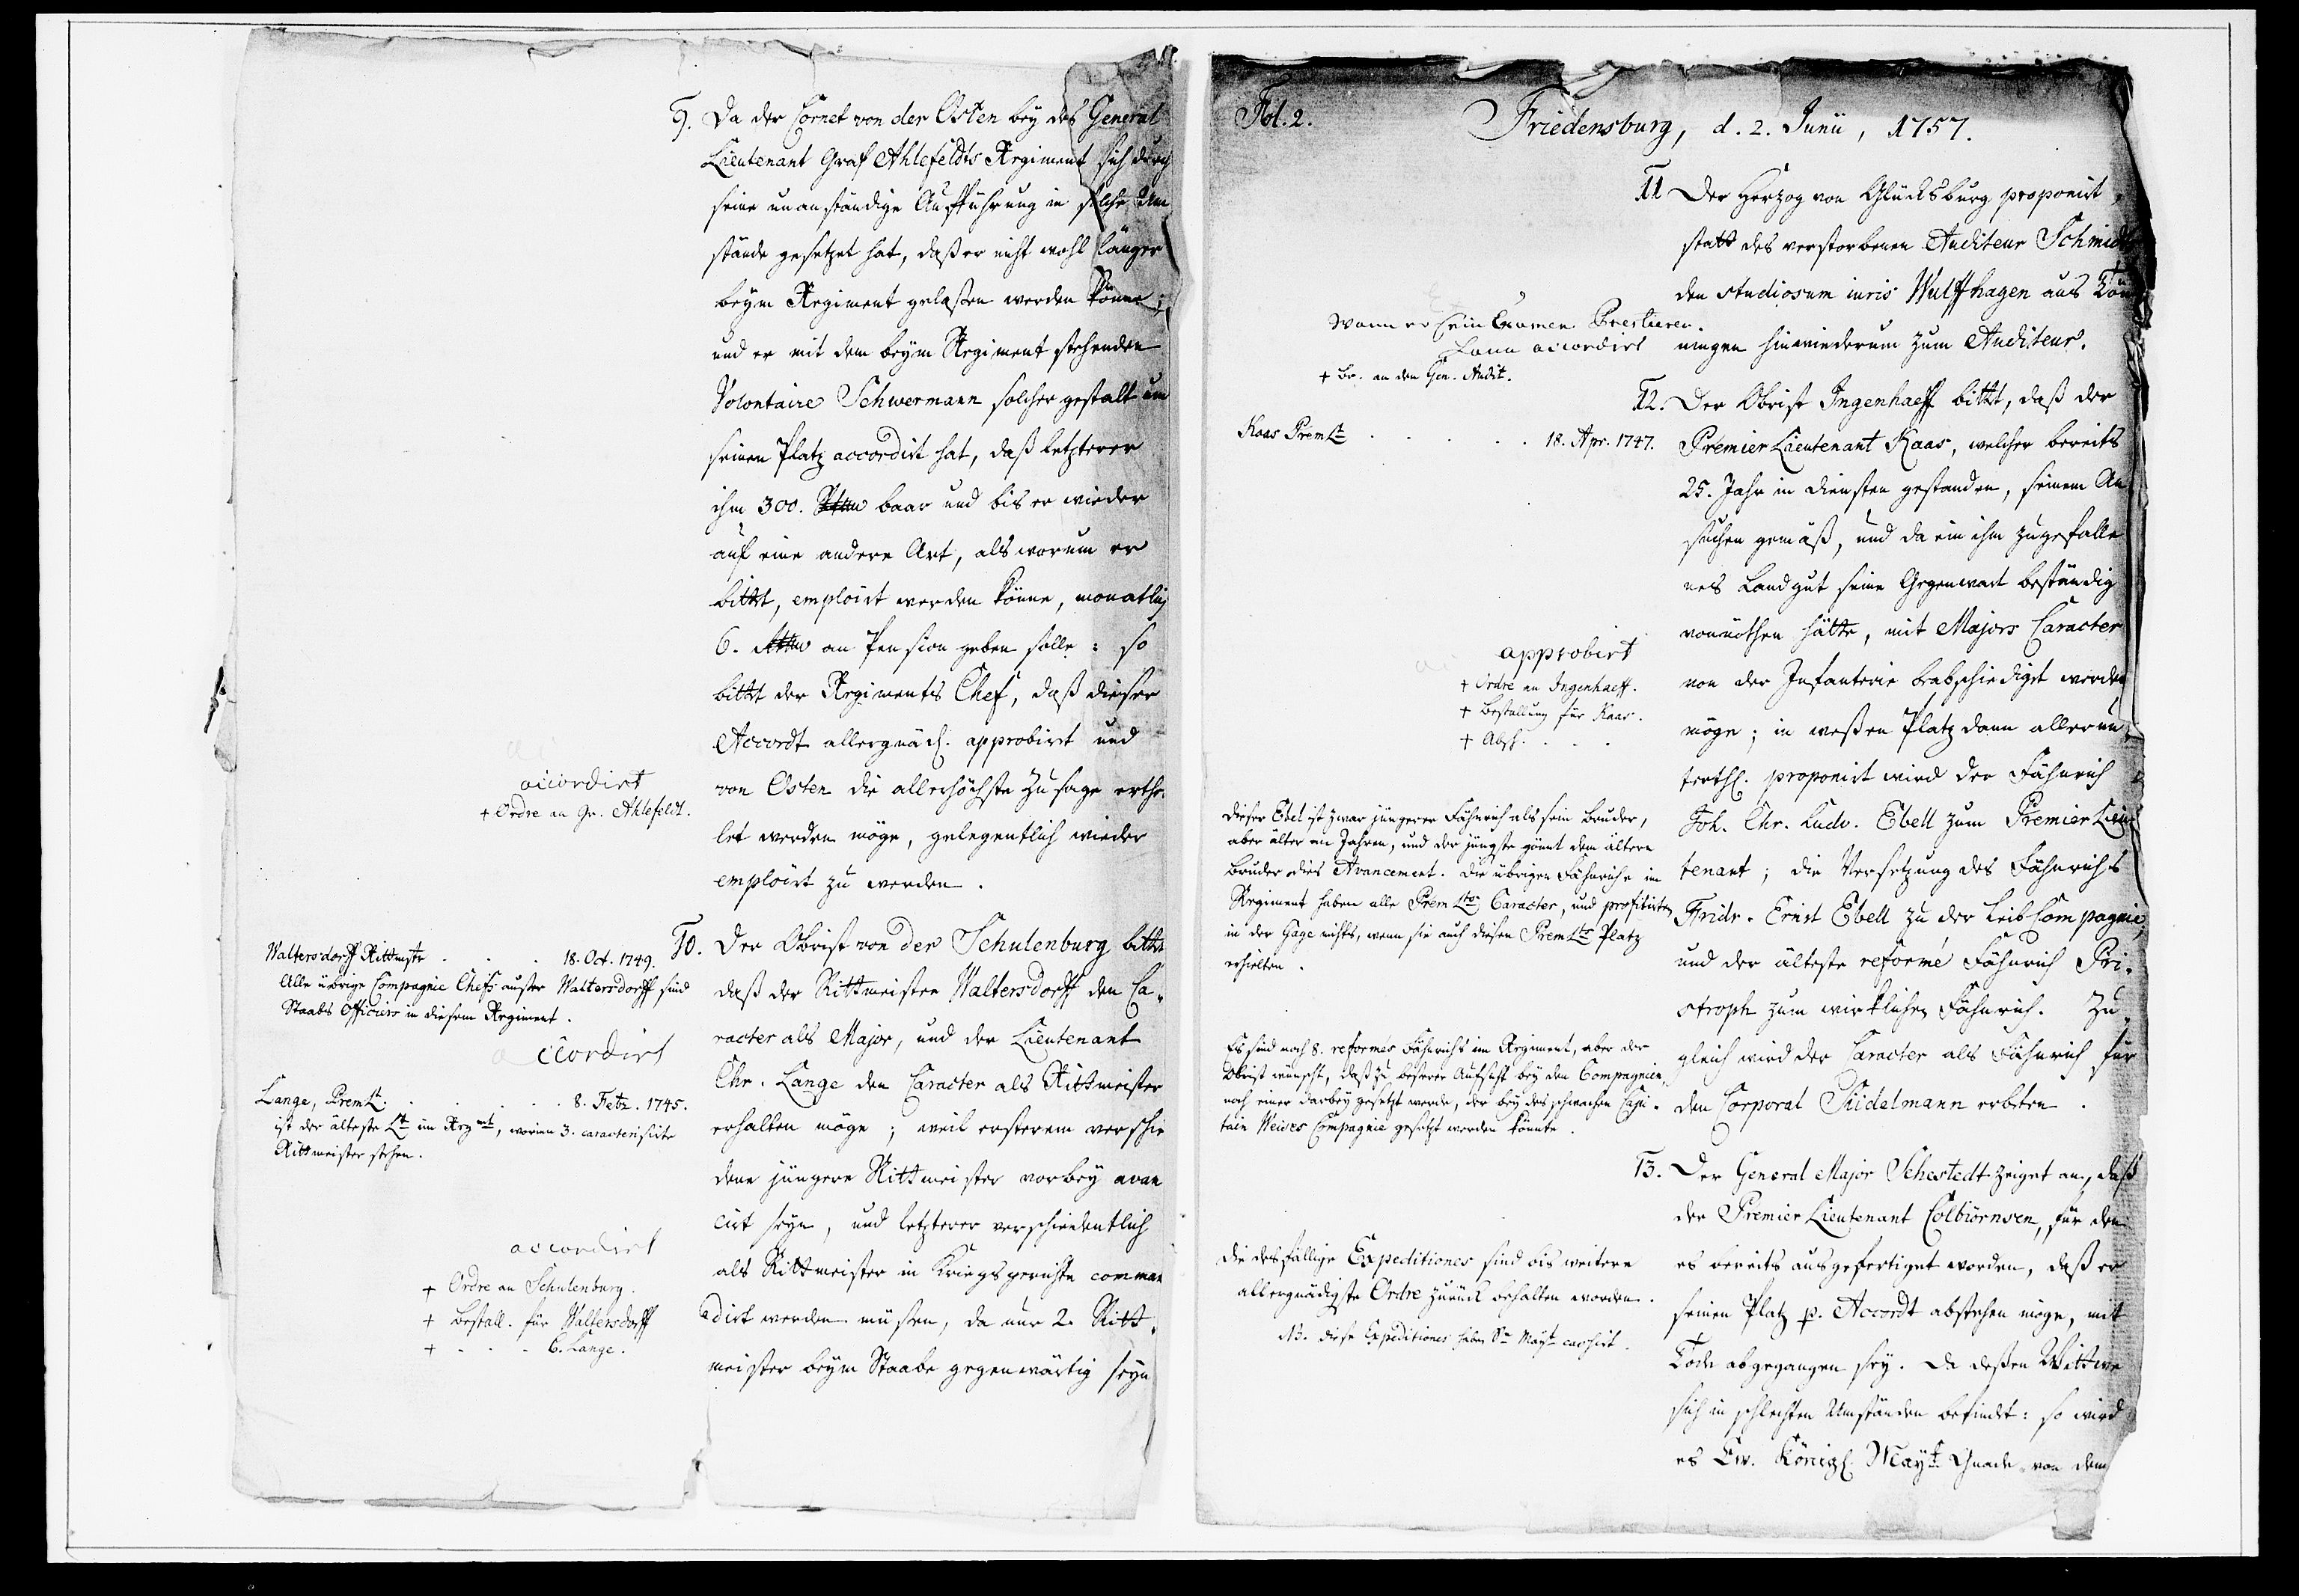 9. Da der Cornet von der Osten bey des General
Lieutenant Graf Ahlefeldts Regiment sich durch
seine unanständige Aufführung in solche Um
stände gesetzet hat, daß er nicht wohl länger
beym Regiment gelaßen werden könne;
und er mit dem beym Regiment stehenden
Volontaire Schwermann solcher gestalt um
seinen Platz accordirt hat, daß letzterer
ihm 300. Rthlr baar und bis er wieder
auf eine andere Art, als worum er
bittet, emploirt werden könne, monatlich
6. Rthlr an Pension geben solle: so
bittet der Regiments Chef, daß dieser
Accordt allergnäd. approbirt und
von Osten die allerhöchste Zusage erthei
let werden möge, gelegentlich wieder
emploirt zu werden.
accordirt
+ Ordre an Gr. Ahlefeldt.
10. Der Obrist von der Schulenburg bittet
daß der Rittmeister Waltersdorff den Ca-
racter als Major, und der Lieutenant
Chr. Lange den Caracter als Rittmeister
erhalten möge; weil ersterem verschie
dene jüngere Rittmeister vorbey avan
cirt seyn, und letzterer verschiedentlich
als Rittmeister in Kriegsgerichte comman
dirt werden müßen, da nur 2. Ritt-
meister beym Staabe gegenwärtig seyn
Waltersdorff Rittmstr . . . 18. Oct. 1749.
Alle übrige Compagnie Chefs außer Waltersdorff sind
Staabs Officiers in diesem Regiment.
accordirt
Lange, PremLt. . . . . 8. Febr. 1745.
ist der älteste Lt im Regmt, worinn 3. caracterisirte
Rittmeister stehen.
accordirt
+ Ordre an Schulenburg.
+ Bestall. für Waltersdorff
+ - - - C. Lange.
Fol. 2.
Friedensburg, d. 2. Junii, 1757.
11 Der Herzog von Glücksburg proponirt,
statt des verstorbenen Auditeur Schmidt
den studiosum iuris Wulffhagen aus Tön
ningen hinwiederum zum Auditeur.
Wann er sein Examen Prestieren
kann accordirt
+ Br. an den Gen. Audit.
12. Der Obrist Ingenhaeff bittet, daß der
Premier Lieutenant Kaas, welcher bereits
25. Jahr in diensten gestanden, seinem An
suchen gemäß, und da ein ihm zugefalle
nes Landgut seine Gegenwart beständig
vonnöthen hätte, mit Majors Caracter
von der Infanterie beabschiediget werden
möge; in weßen Platz dann allerun
terthl. proponirt wird der Fähnrich
Joh. Chr. Ludv. Ebell zum Premier Lieu
tenant; die Versetzung des Fähnrichs
Fridr. Ernst Ebell zu der Leib Compagnie,
und der älteste reformé Fähnrich Pri-
stroph zum wirklichen Fähnrich. Zu-
gleich wird der Caracter als Fähnrich für
den Corporal Südelmann erbeten.
Kaas PremLt . . . . . 18. Apr. 1747.
approbirt
+ Ordre an Ingenhaeff.
+ Bestallung für Kaas.
+ Absch. . . .
Dieser Ebel ist zwar jüngerer Fähnrich als sein Bruder,
aber älter an Jahren, und der jüngste gönnt dem ältern
Bruder dies Avancement. Die übrigen Fähnrichs im
Regiment haben alle PremLts Caracter, und profitirten
in der Gage nichts, wenn sie auch diesen PremLts Platz
erhielten.
Es sind noch 8. reformés Fähnrichs im Regiment, aber der
Obrist wünscht, daß zu beßerer Aufsicht bey den Compagnien,
noch einer darbey gesetzt werde, der bey des schwachen Capi-
tain Weises Compagnie gesetzt werden könnte.
13. Der General Major Sehestedt zeiget an, daß
der Premier Lieutenant Colbiørnsen, für den
es bereits ausgefertiget worden, daß er
seinen Platz p. Accordt abstehen möge, mit
Tode abgegangen sey. Da deßen Wittwe
sich in schlechten Umständen befindet: so wird
es Ew. Königl. Mayt. Gnade von dem
Die desfällige Expeditiones sind bis weitere
allergnädigste Ordre zurück behalten worden.
NB. diese Expeditiones haben Se Mayt cassirt.